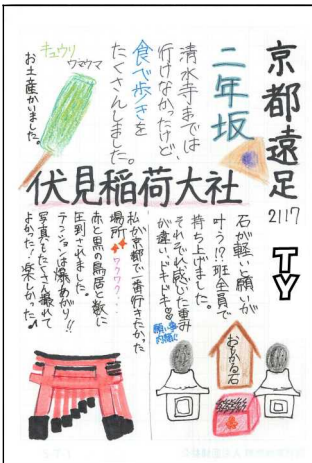 京都遠足
2117
TY
二年坂
清水寺までは
行けなかったけど、
食べ歩きを
たくさんしました。
キュウリ
ウマウマ
お土産かいました。
伏見稲荷大社
石が軽いと願いが
叶う!?班全員で
持ち上げました。
それぞれ感じた重み
が違い、ドキドキ
願い事
内緒に
おもかる石
私が京都で一番行きたかった
場所
ワクワク…
赤と黒の鳥居と数に
圧到されました。
テンションは爆あがり!!
写真もたくさん撮れて
よかった!楽しかった♪